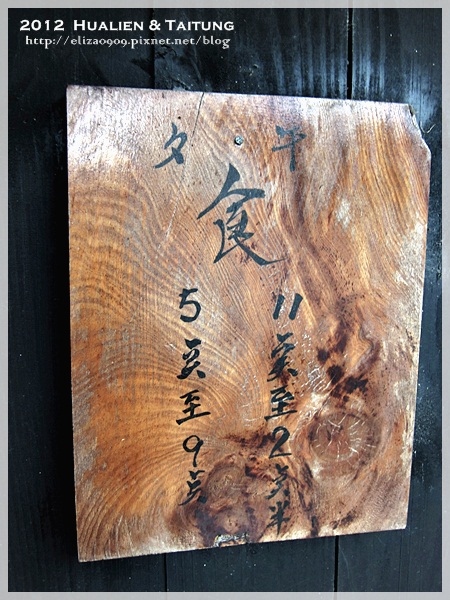 2012 HUALIEN & TAITUNG
http://eliza0909.pixnet.net/blog
午
夕
食
11点至2点半
5点至9点